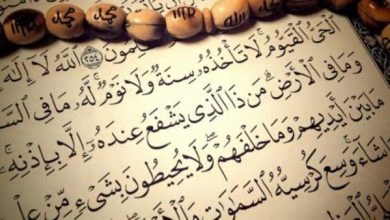 محمد
محمد
الله
ـلمون ٢٥٤ الله لا إله
الْحَىُّ الْقَيُّومُ لَا تَأْخُذُهُ سِنَةٌ وَلَا نَوْمٌ لَّهُ مَا فِى السَّ
وَمَا فِى الْأَرْضِ مَن ذَا الَّذِى يَشْفَعُ عِندَهُ إِلَّا بِإِذْنِهِ
مَا بَيْنَ أَيْدِيهِمْ وَمَا خَلْفَهُمْ وَلَا يُحِيطُونَ بِشَىْءٍ مِّنْ عِ
شَاءَ وَسِعَ كُرْسِيُّهُ السَّمَٰوَٰتِ وَالْأَ